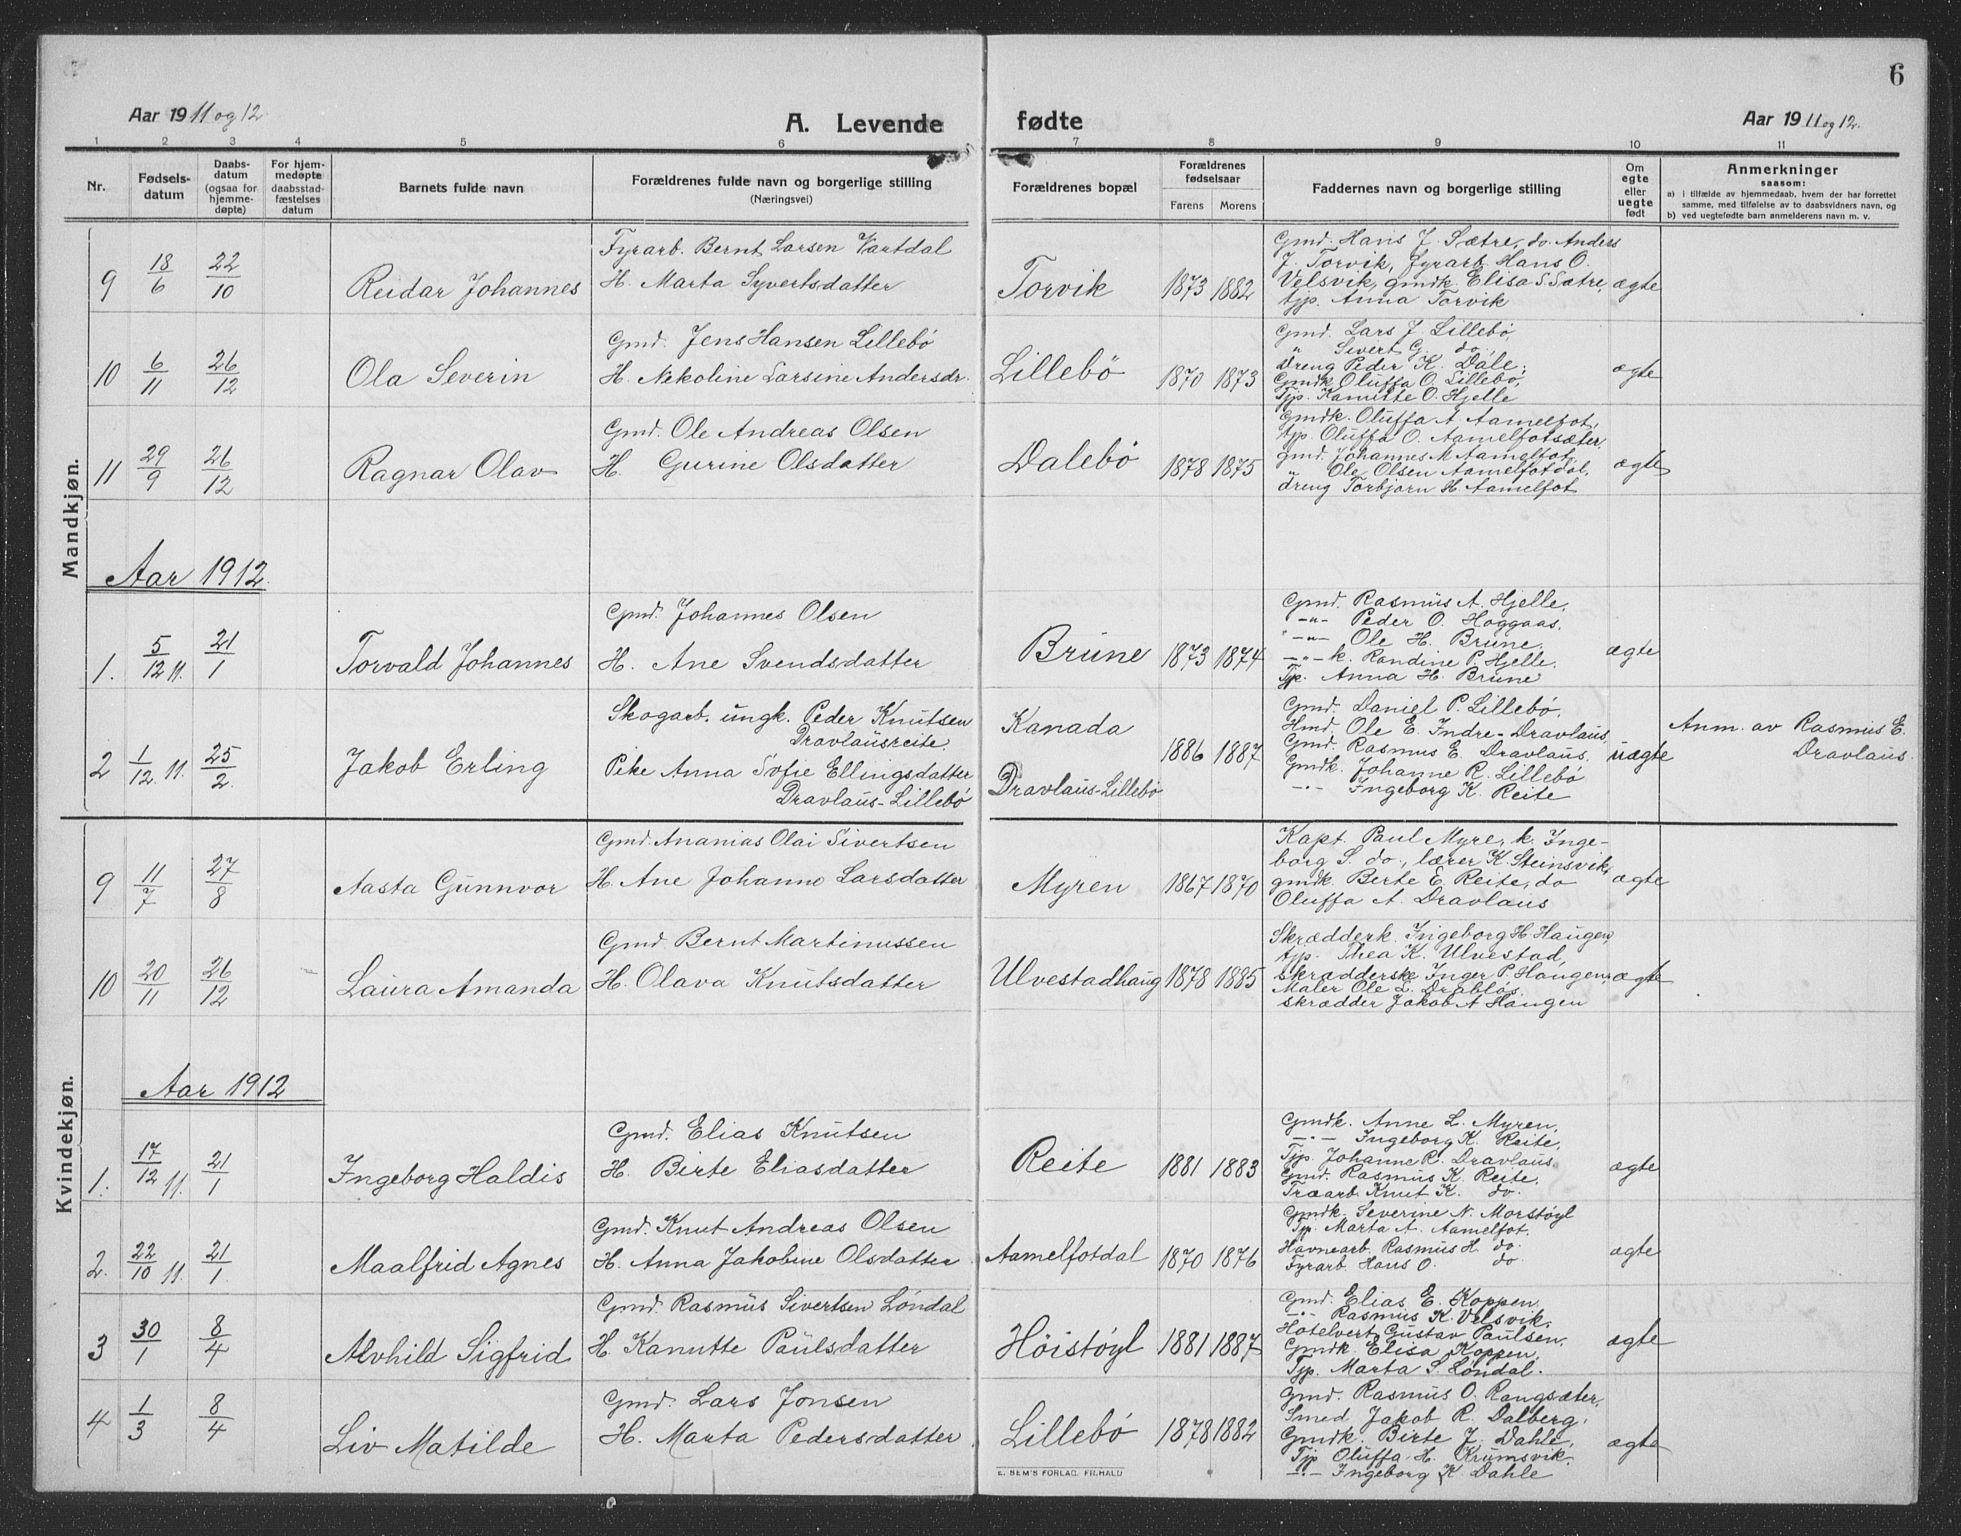 6
Aar 1911 og 12.
A. Levende fødte
Aar 1911 og 12.
1 2 3 4 5 6 7 8 9 10 11
Nr.
Fødsels-
datum
Daabs-
datum
(ogsaa for
hjemme-
døpte)
For hjem-
medøpte
daabsstad-
fæstelses
datum
Barnets fulde navn
Forældrenes fulde navn og borgerlige stilling
(Næringsvei)
Forældrenes bopæl
Forældrenes
fødselsaar
Farens Morens
Faddernes navn og borgerlige stilling
Om
egte
eller
uegte
født
Anmerkninger
saasom:
a) i tilfælde av hjemmedaab, hvem der har forrettet
samme, med tilføielse av to daabsvidners navn, og
b) ved uegtefødte barn anmelderens navn m. v.
Mandkjøn.
9 18/6 22/10 Reidar Johannes
Fyrarb. Bernt Larsen Vartdal
H. Marta Syvertsdatter
Torvik 1873 1882
Gmd. Hans J. Sætre, do. Anders
J. Torvik, Fyrarb. Hans O.
Velsvik, gmdk. Elisa S. Sætre,
tjp. Anna Torvik
ægte
10 6/11 26/12 Ola Severin
Gmd. Jens Hansen Lillebø
H. Nekoline Larsine Andersdr.
Lillebø 1870 1873
Gmd. Lars J. Lillebø,
" Sivert G. do,
dreng Peder K. Dale;
Gmdk. Oluffa O. Lillebø,
Tjp. Kanutte O. Hjelle
ægte
11 29/9 26/12 Ragnar Olav
Gmd. Ole Andreas Olsen
H. Gurine Olsdatter
Dalebø 1878 1875
Gmdk. Oluffa A. Aamelfot,
tjp. Oluffa O. Aamelfotsæter,
gmd. Johannes M. Aamelfot,
" Ole Olsen Aamelfotdal,
dreng Torbjørn H. Aamelfot
ægte
Aar 1912.
1. 5/12 11. 21/1 Torvald Johannes
Gmd. Johannes Olsen
H. Ane Svendsdatter
Brune 1873 1874
Gmd. Rasmus A. Hjelle,
-"- Peder O. Hoggaas,
-"- Ole H. Brune,
-"- k. Randine P. Hjelle,
Tjp. Anna H. Brune
ægte
2 1/12. 11. 25/2. Jakob Erling
Skogarb. ungk. Peder Knutsen
Dravlausreite.
Pike Anna Sofie Ellingsdatter
Dravlaus-Lillebø
Kanada
Dravlaus-Lillebø
1886 1887
Gmd. Daniel P. Lillebø,
Hmd. Ole E. Indre-Dravlaus,
Gmd. Rasmus E. Dravlaus,
Gmdk. Johanne R. Lillebø
-"- Ingeborg K. Reite
uægte
Anm. av Rasmus E.
Dravlaus.
Kvindekjøn.
9 11/7 27/8 Aasta Gunnvor
Gmd. Ananias Olai Sivertsen
H. Ane Johanne Larsdatter
Myren 1867 1870
Kapt. Paul Myre, k. Inge-
borg S. do., lærer K. Steinsvik,
gmdk. Berte E. Reite, do
Oluffa A. Dravlaus
ægte
10 20/11 26/12 Laura Amanda
Gmd. Bernt Martinussen
H. Olava Knutsdatter
Ulvestadhaug 1878 1885
Skrædderk. Ingeborg H. Haugen,
tjp. Thea K. Ulvestad,
skrædderske Inger P. Haugen,
Maler Ole L. Drabløs,
skrædder Jakob A. Haugen
ægte
Aar 1912
1. 17/12 11. 21/1 Ingeborg Haldis
Gmd. Elias Knutsen
H. Birte Eliasdatter
Reite 1881 1883
Gmdk. Anne L. Myren,
-"- Ingeborg K. Reite,
Tjp. Johanne R. Dravlaus
Gmd. Rasmus K. Reite,
Træarb. Knut K. do.
ægte
2. 22/10 11. 21/1. Maalfrid Agnes
Gmd. Knut Andreas Olsen
H. Anna Jakobine Olsdatter
Aamelfotdal 1870 1876
Gmdk. Severine N. Morstøyl
Tjp. Marta A. Aamelfot.
Havnearb. Rasmus H. do.
Fyrarb. Hans O. do
ægte
3 30/1 8/4 Alvhild Sigfrid
Gmd. Rasmus Sivertsen Løndal
H. Kanutte Paulsdatter
Høistøyl 1881 1887
Gmd. Elias E. Koppen,
-"- Rasmus K. Velsvik,
Hotelvert Gustav Paulsen,
Gmdk. Elisa Koppen,
Tjp. Marta S. Løndal.
ægte
4 1/3 8/4 Liv Matilde
Gmd. Lars Jonsen
H. Marta Pedersdatter
Lillebø 1878 1882
Gmd. Rasmus O. Rangsæter,
Smed Jakob R. Dalberg,
Gmdk. Birte J. Dahle,
Tjp. Oluffa H. Krumsvik,
-"- Ingeborg K. Dahle
ægte
E. SEM'S FORLAG. FR.HALD